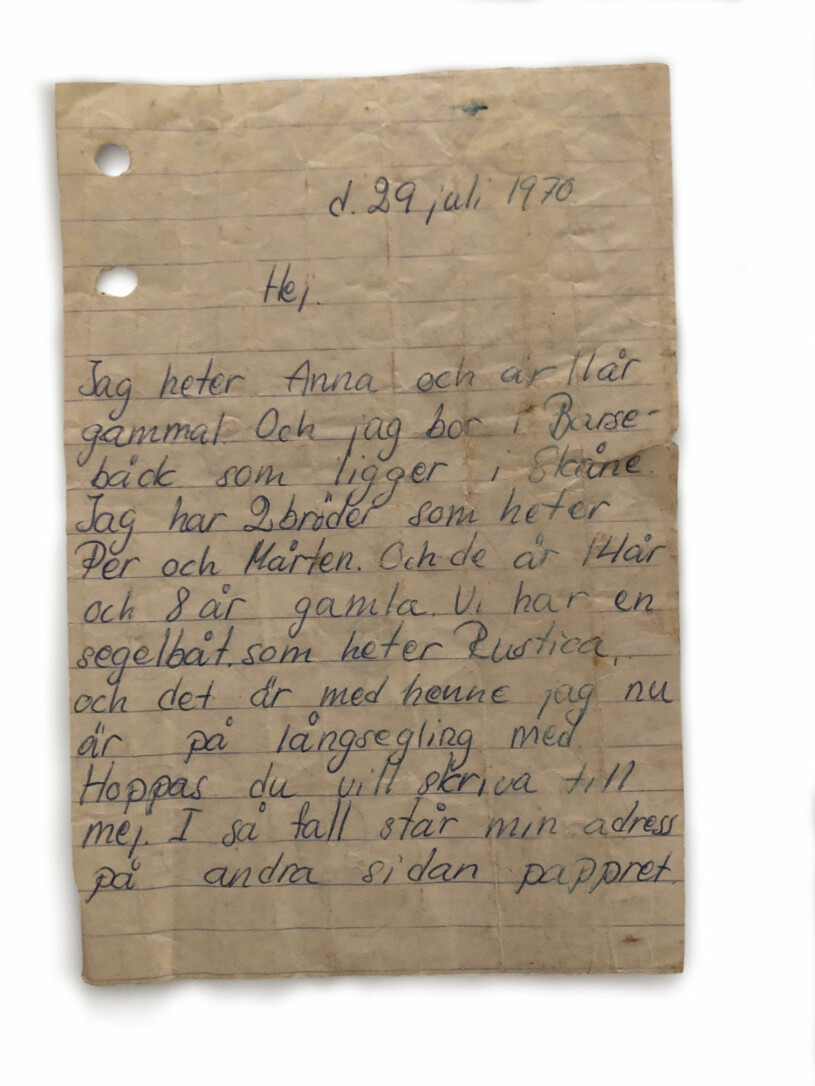 d. 29 juli 1970
Hej.
Jag heter Anna och är 11 år
gammal. Och jag bor i Barse-
bäck som ligger i Skåne.
Jag har 2 bröder som heter
Per och Mårten. Och de är 14 år
och 8 år gamla. Vi har en
segelbåt. som heter Rustica,
och det är med henne jag nu
är på långsegling med.
Hoppas du vill skriva till
mej. I så fall står min adress
på andra sidan pappret.